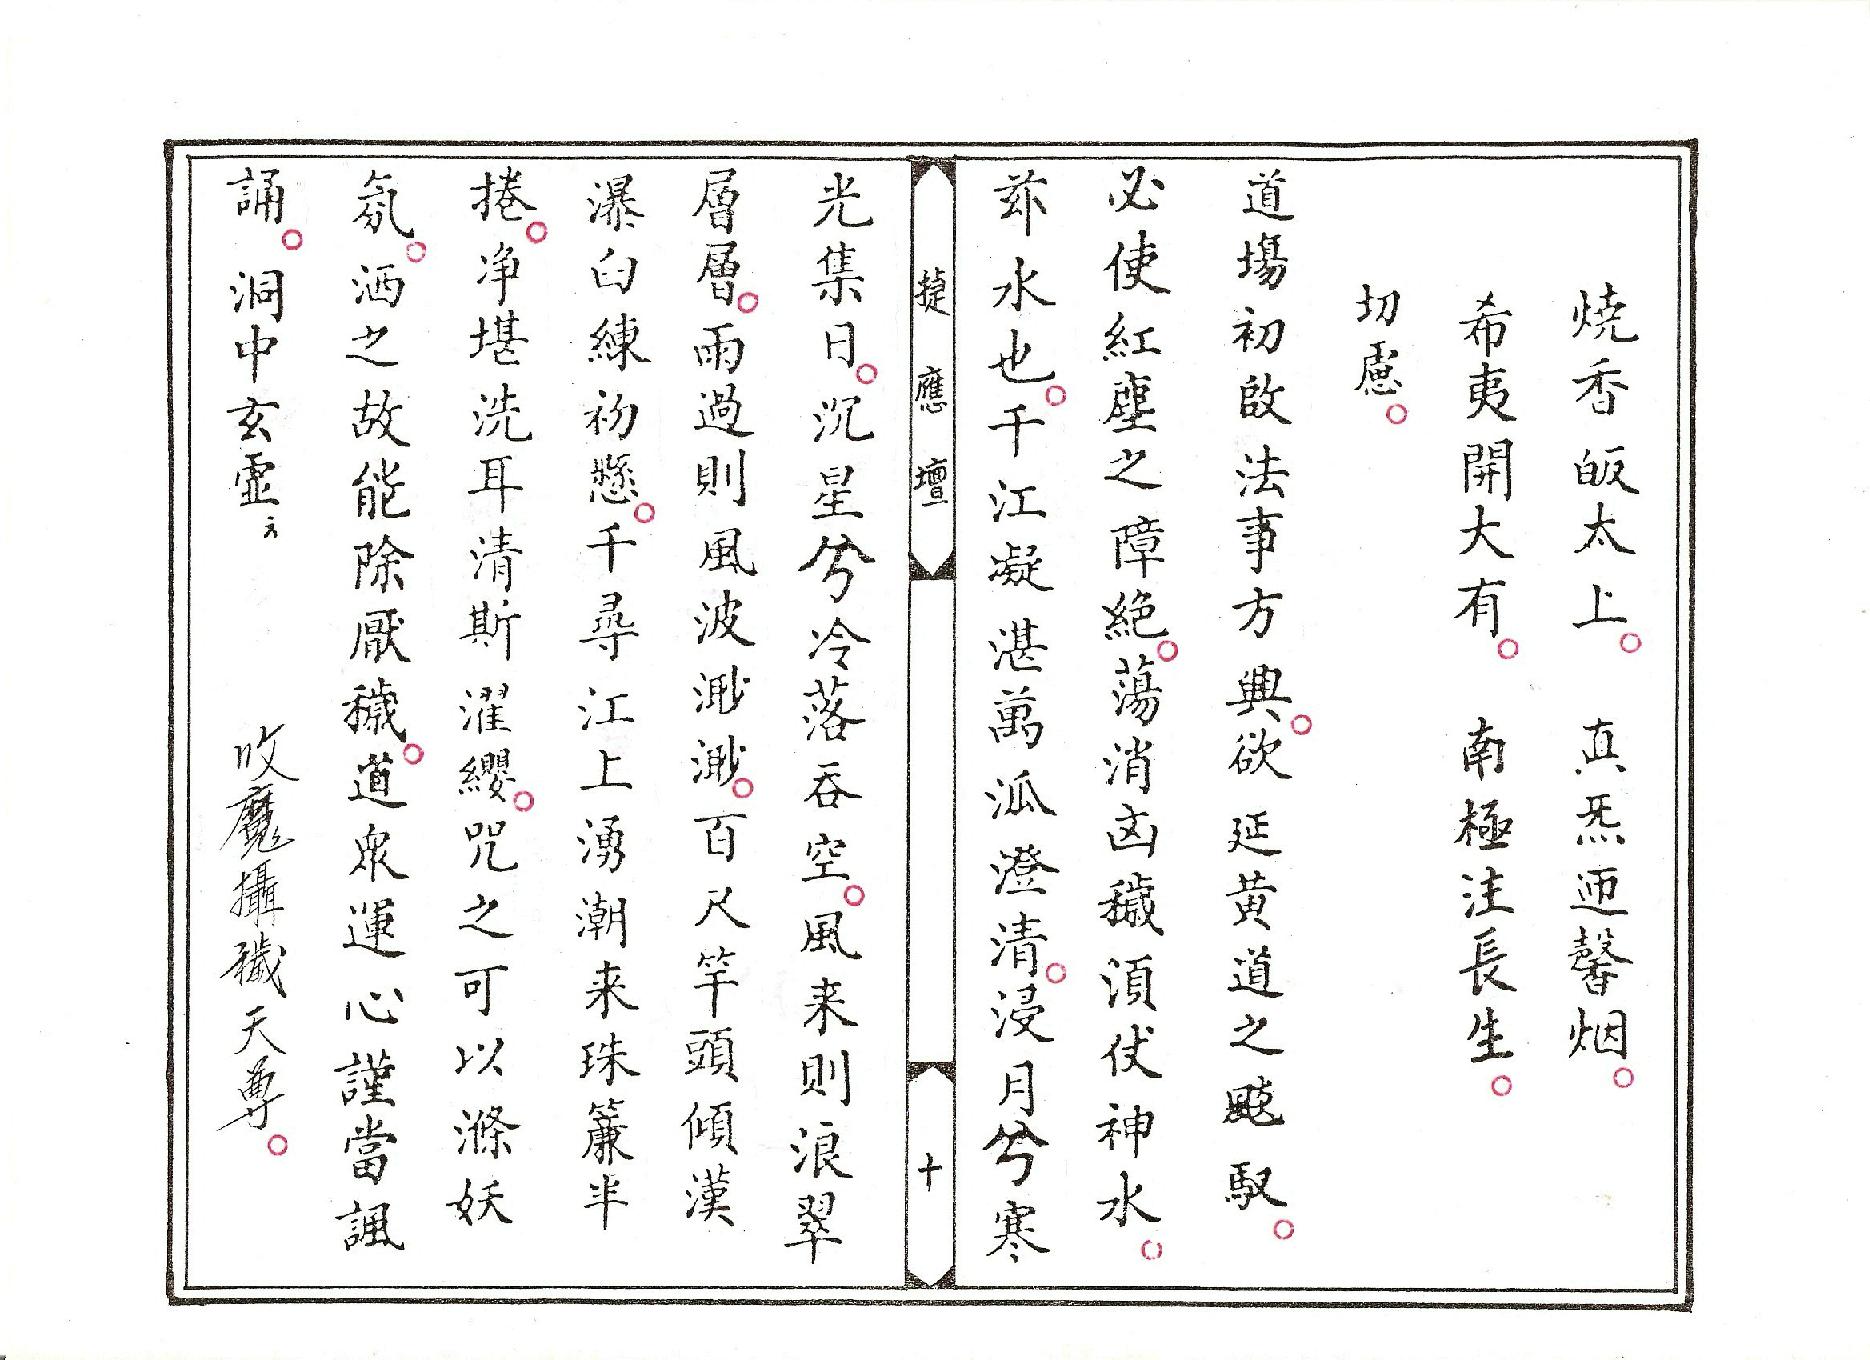 燒香皈太上。真炁迊馨烟。
希夷開大有。南極注長生。
切慮。
道場初啟法事方興。欲延黃道之飈馭。
必使紅塵之障絕。蕩消凶穢須仗神水。
茲水也。千江凝湛萬派澄清。浸月兮寒
捷應壇
十
光集日。沉星兮冷落吞空。風来則浪翠
層層。雨過則風波渺渺。百尺竿頭傾漢
瀑白練初懸。千尋江上湧潮来珠簾半
捲。净堪洗耳清斯濯纓。咒之可以滌妖
氛。洒之故能除厭穢。道眾運心謹當諷
誦。洞中玄虛
收魔攝穢天尊。